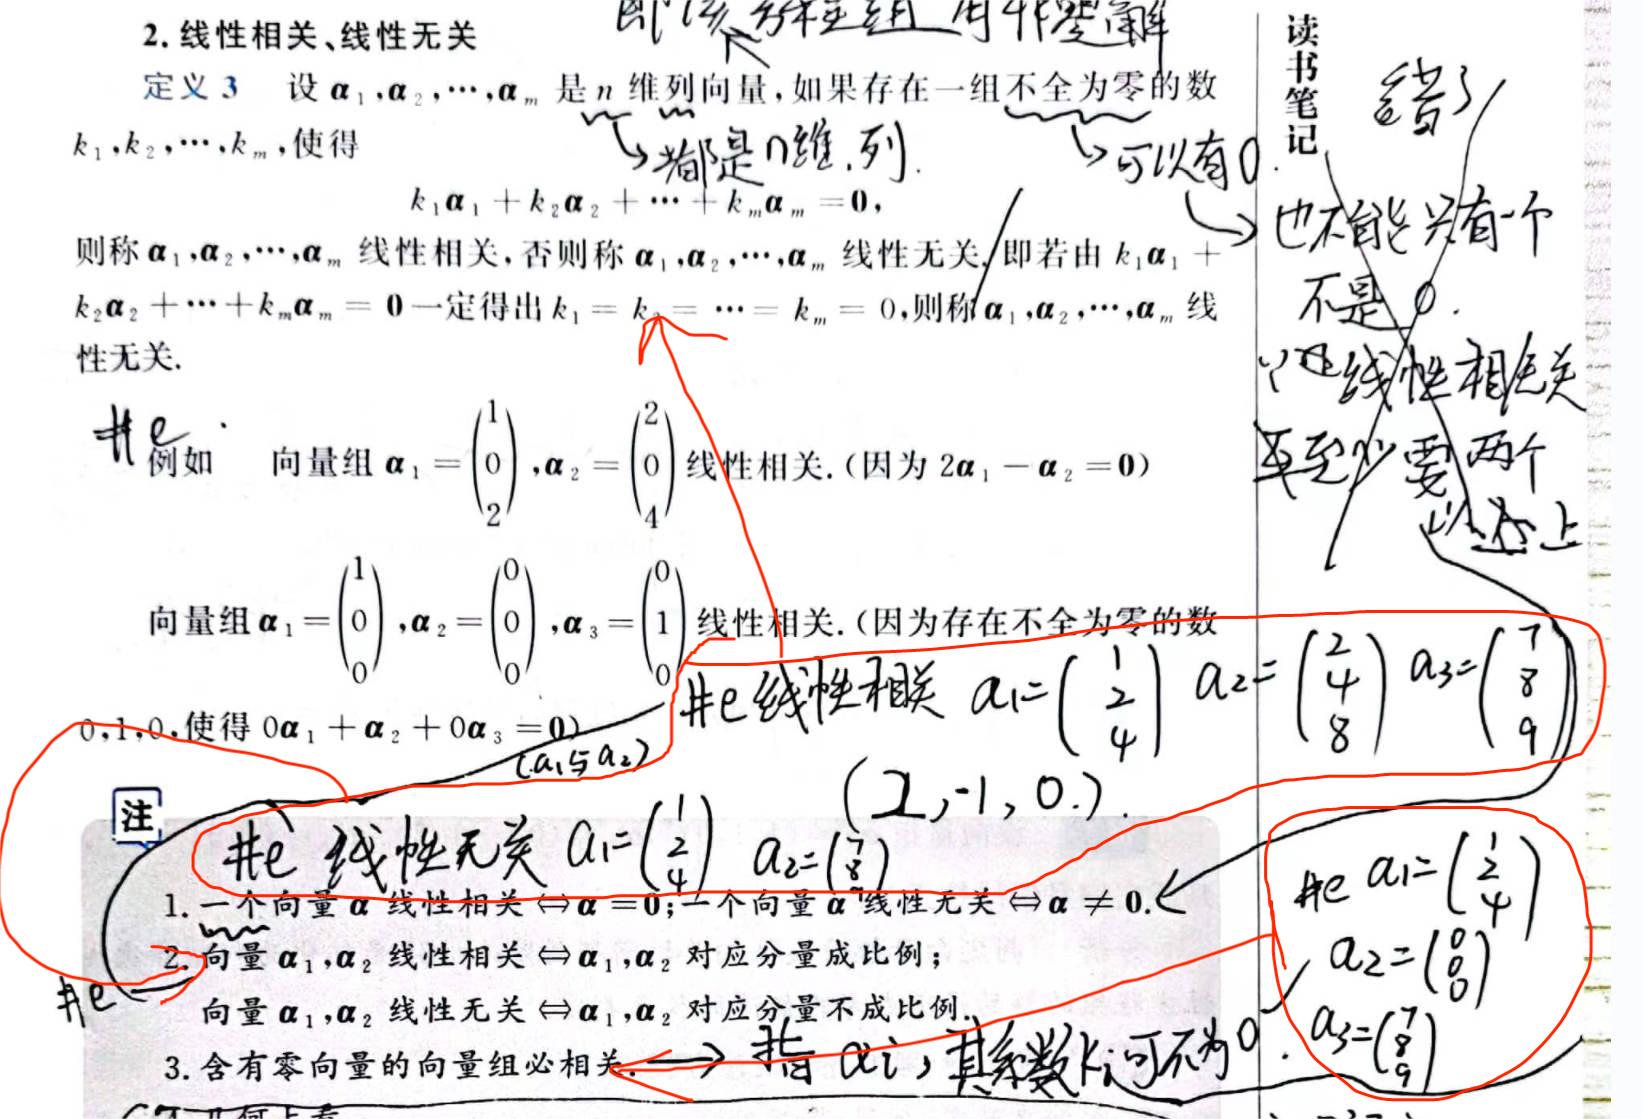 即该方程组有非零解
2.线性相关、线性无关
定义3 设α₁,α₂,⋯,αₘ是n维列向量,如果存在一组不全为零的数
k₁,k₂,⋯,kₘ,使得
都是n维.列.
可以有0.
k₁α₁+k₂α₂+⋯+kₘαₘ=0,
则称α₁,α₂,⋯,αₘ线性相关,否则称α₁,α₂,⋯,αₘ线性无关.即若由k₁α₁+
k₂α₂+⋯+kₘαₘ=0一定得出k₁=k₂=⋯=kₘ=0,则称α₁,α₂,⋯,αₘ线
性无关.
读书笔记
错了
也不能只有一个
不是0.
线性相关
至少需两个
以上
#e
例如 向量组α₁=(1 0 2),α₂=(2 0 4)线性相关.(因为2α₁-α₂=0)
向量组α₁=(1 0 0),α₂=(0 0 0),α₃=(0 1 0)线性相关.(因为存在不全为零的数
0,1,0,使得0α₁+α₂+0α₃=0)
#e线性相关 a₁=(1 2 4) a₂=(2 4 8) a₃=(7 8 9)
(a₁与a₂)
(2,-1,0.).
注
#e 线性无关 a₁=(1 2 4) a₂=(7 8 9)
1.一个向量α线性相关⇔α=0;一个向量α线性无关⇔α≠0.
2.向量α₁,α₂线性相关⇔α₁,α₂对应分量成比例;
#e
向量α₁,α₂线性无关⇔α₁,α₂对应分量不成比例.
3.含有零向量的向量组必相关.
→ 指αi,其系数ki可不为0.
#e a₁=(1 2 4)
a₂=(0 0 0)
a₃=(7 8 9)